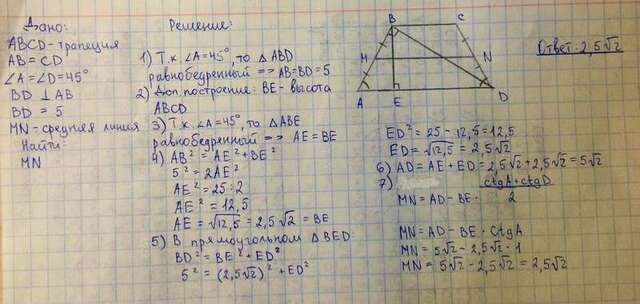 Дано:
ABCD-трапеция
AB = CD
∠A = ∠D = 45°
BD ⊥ AB
BD = 5
MN - средняя линия
Найти:
MN
Решение:
1) Т.к. ∠A=45°, то △ABD
равнобедренный => AB=BD=5
2) Доп. построение: BE - высота
ABCD
3) Т.к. ∠A=45°, то △ABE
равнобедренный => AE=BE
4) AB² = AE² + BE²
5² = 2AE²
AE² = 25:2
AE² = 12,5
AE = √12,5 = 2,5√2 = BE
5) В прямоугольном △BED:
BD² = BE² + ED²
5² = (2,5√2)² + ED²
B C
M N
A E D
ED² = 25 - 12,5 = 12,5
ED = √12,5 = 2,5√2
6) AD = AE + ED = 2,5√2 + 2,5√2 = 5√2
7) ctgA + ctgD
MN = AD - BE · 2
MN = AD - BE · ctgA
MN = 5√2 - 2,5√2 · 1
MN = 5√2 - 2,5√2 = 2,5√2
Ответ: 2,5√2